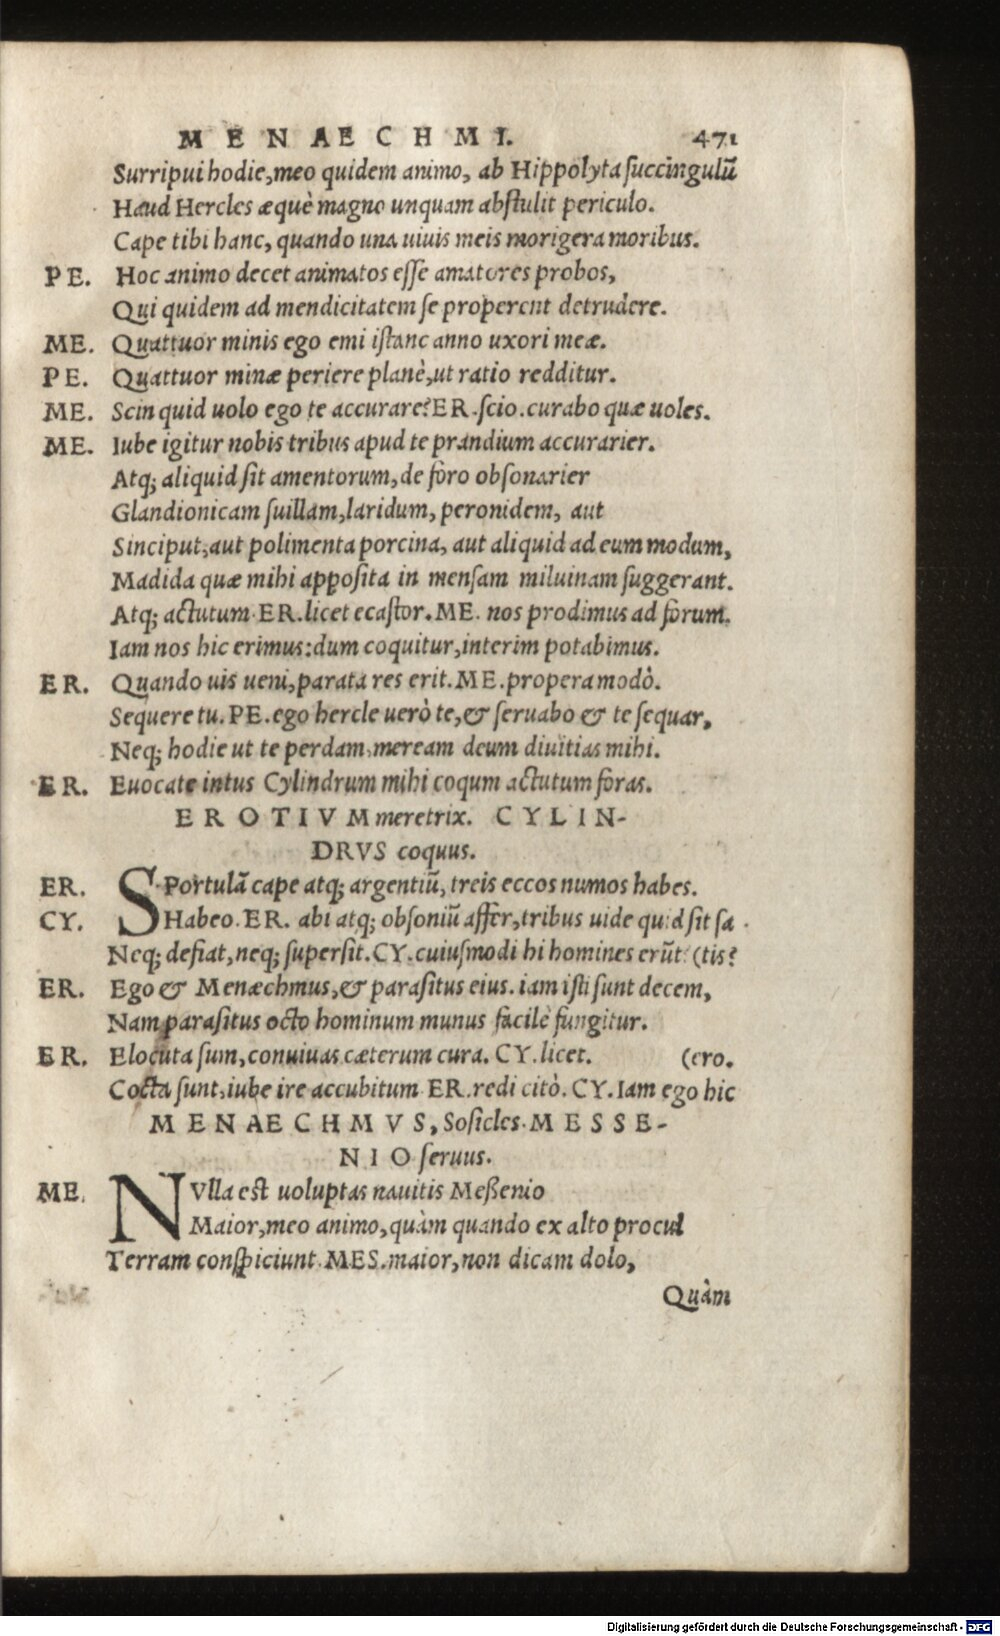 MENAECHMI. 471
Surripui hodie, meo quidem animo, ab Hippolyta succingulũ
Haud Hercles æquè magno unquam abstulit periculo.
Cape tibi hanc, quando una uiuis meis morigera moribus.
PE. Hoc animo decet animatos esse amatores probos,
Qui quidem ad mendicitatem se properent detrudere.
ME. Quattuor minis ego emi istanc anno uxori meæ.
PE. Quattuor minæ periere planè, ut ratio redditur.
ME. Scin quid uolo ego te accurare? ER. scio. curabo quæ uoles.
ME. Iube igitur nobis tribus apud te prandium accurarier.
Atq; aliquid sit amentorum, de foro obsonarier
Glandionicam suillam, laridum, peronidem, aut
Sinciput, aut polimenta porcina, aut aliquid ad eum modum,
Madida quæ mihi apposita in mensam miluinam suggerant.
Atq; actutum. ER. licet ecastor. ME. nos prodimus ad forum.
Iam nos hic erimus: dum coquitur, interim potabimus.
ER. Quando uis ueni, parata res erit. ME. propera modò.
Sequere tu. PE. ego hercle uerò te, & seruabo & te sequar,
Neq; hodie ut te perdam, meream deum diuitias mihi.
ER. Euocate intus Cylindrum mihi coqum actutum foras.
EROTIVM meretrix. CYLIN-
DRVS coquus.
ER. SPortulã cape atq; argentiũ, treis eccos numos habes.
CY. Habeo. ER. abi atq; obsoniũ affer, tribus uide quid sit sa
Neq; defiat, neq; supersit. CY. cuiusmodi hi homines erũt? (tis?
ER. Ego & Menæchmus, & parasitus eius. iam isti sunt decem,
Nam parasitus octo hominum munus facilè fungitur.
ER. Elocuta sum, conuiuas cæterum cura. CY. licet. (ero.
Cocta sunt, iube ire accubitum. ER. redi citò. CY. Iam ego hic
MENAECHMVS, Sosicles. MESSE-
NIO seruus.
ME. NVlla est uoluptas nauitis Meßenio
Maior, meo animo, quàm quando ex alto procul
Terram conspiciunt. MES. maior, non dicam dolo,
Quàm
Digitalisierung gefördert durch die Deutsche Forschungsgemeinschaft - DFG